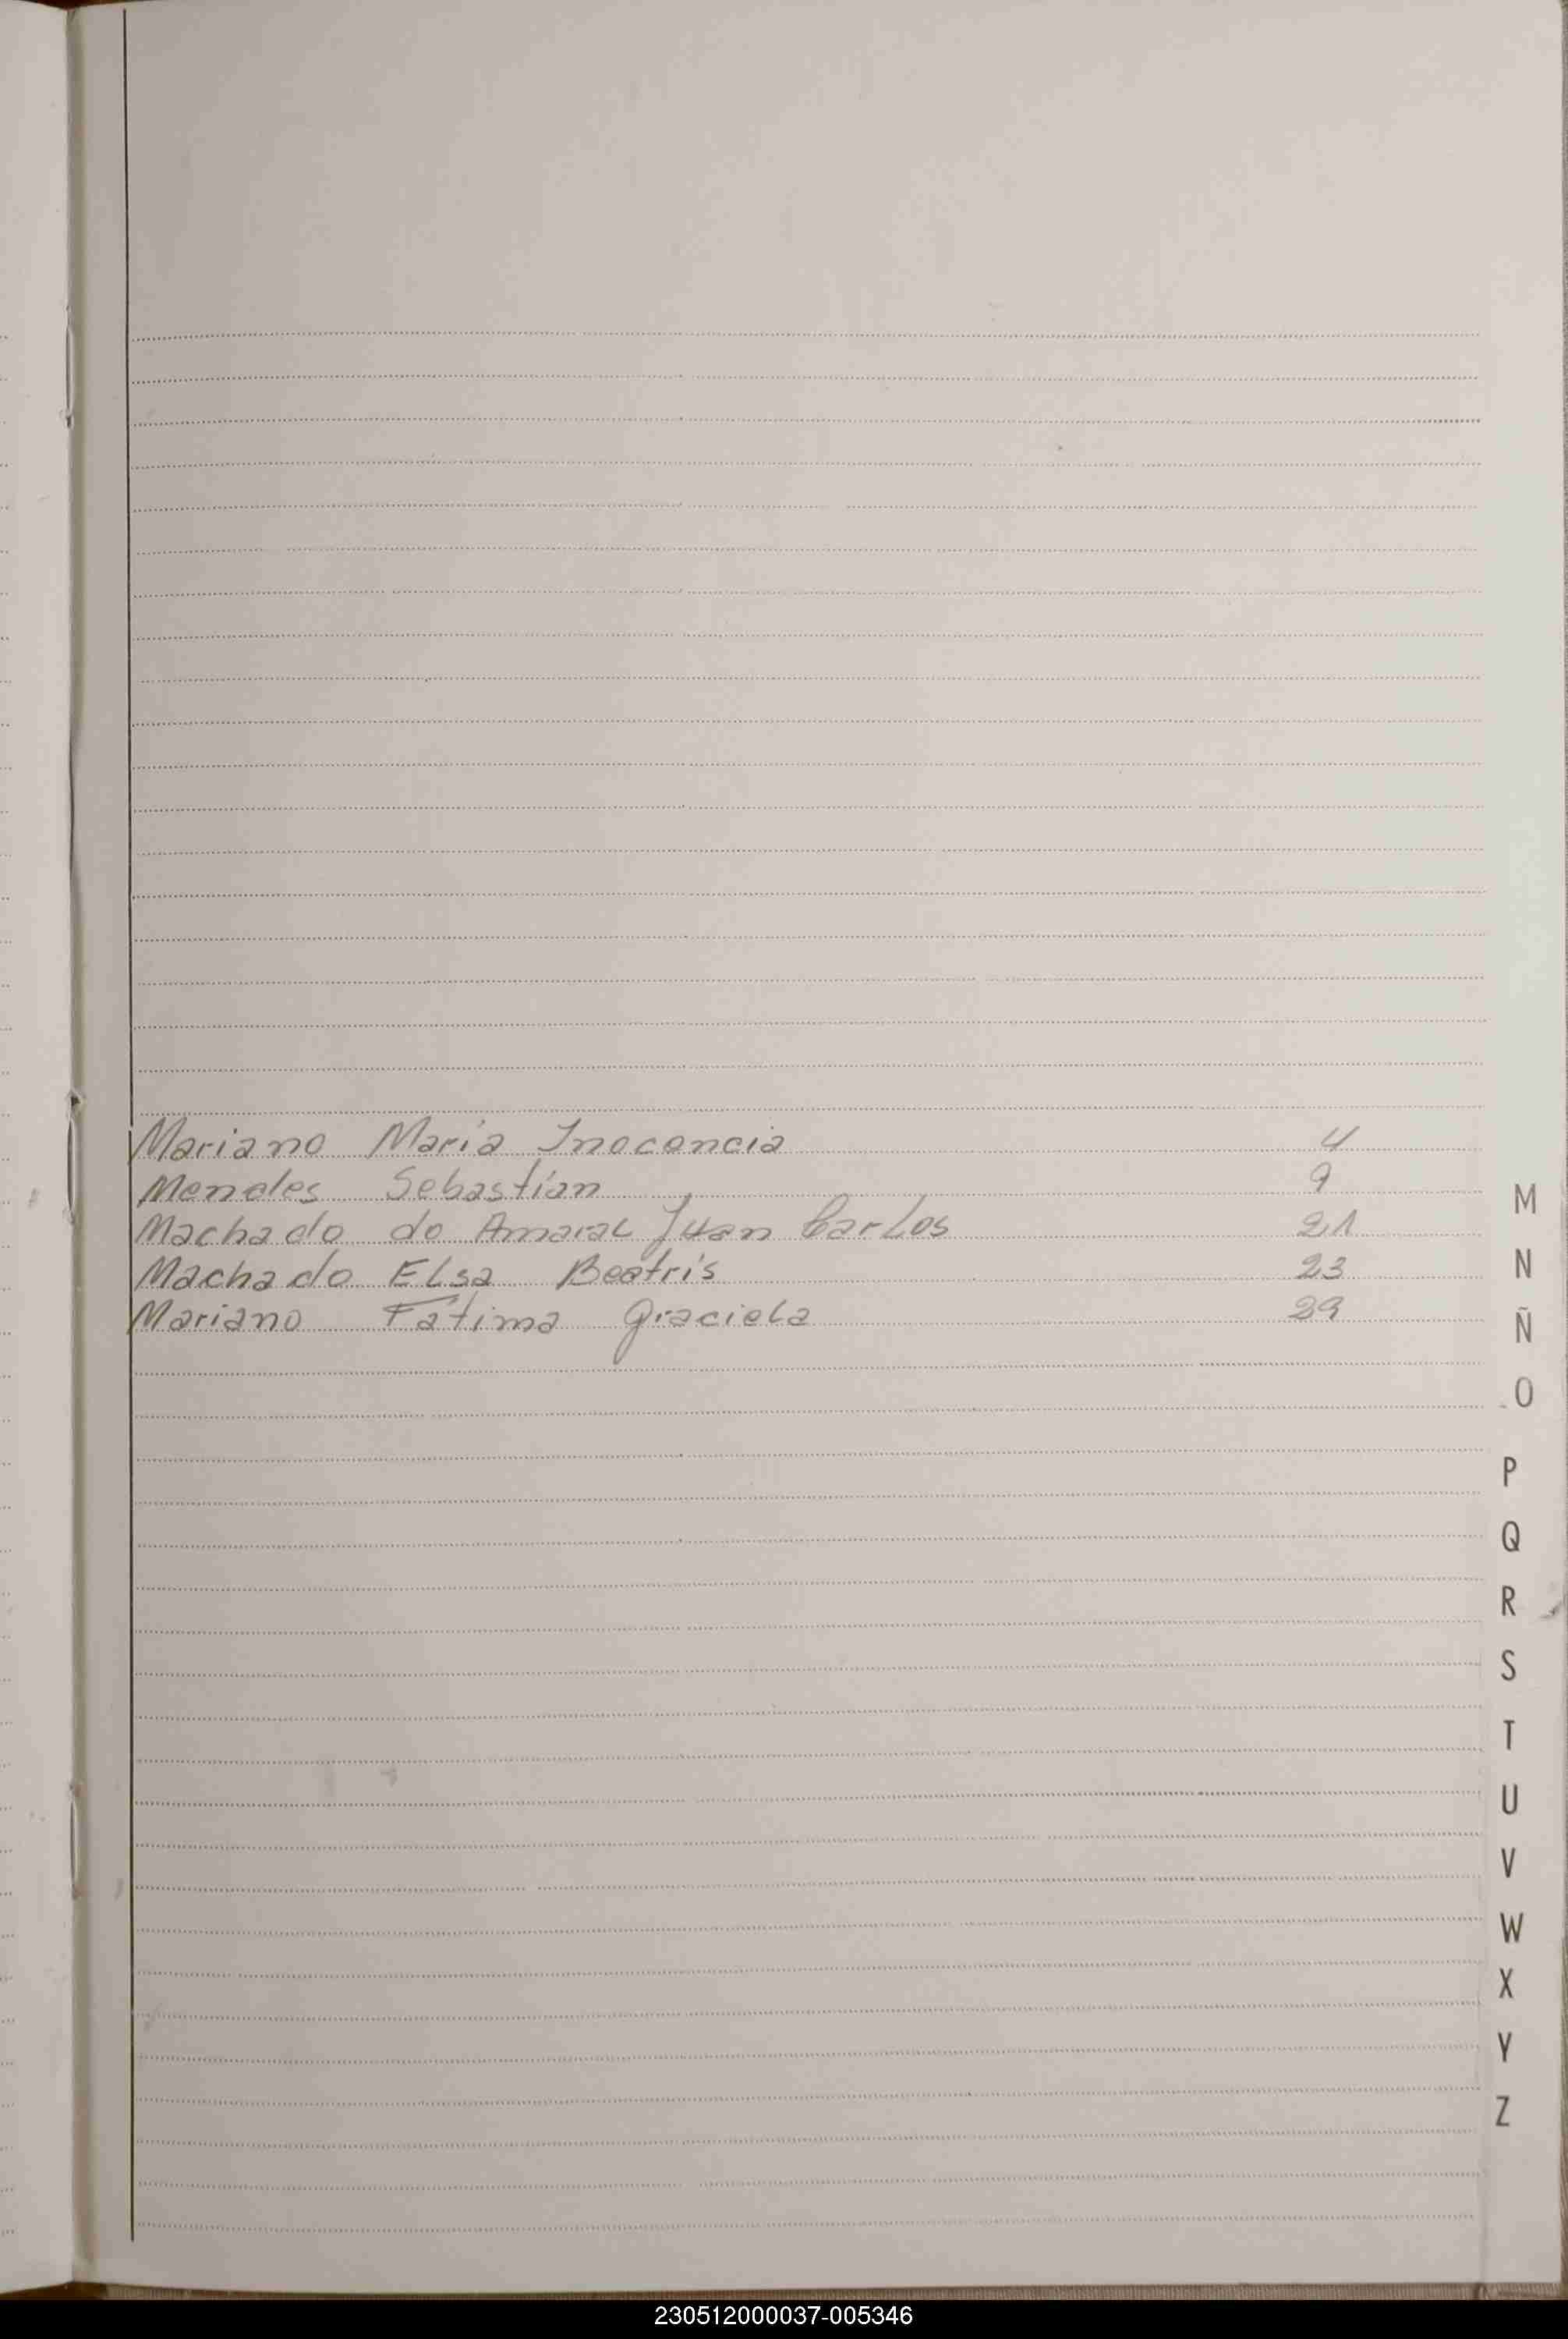 Mariano María Inocencia 4
Mendes Sebastían 9
Machado do Amaral Juan Carlos 21
Machado Elsa Beatrís 23
Mariano Fátima Graciela 29
M
N
Ñ
O
P
Q
R
S
T
U
V
W
X
Y
Z
230512000037-005346